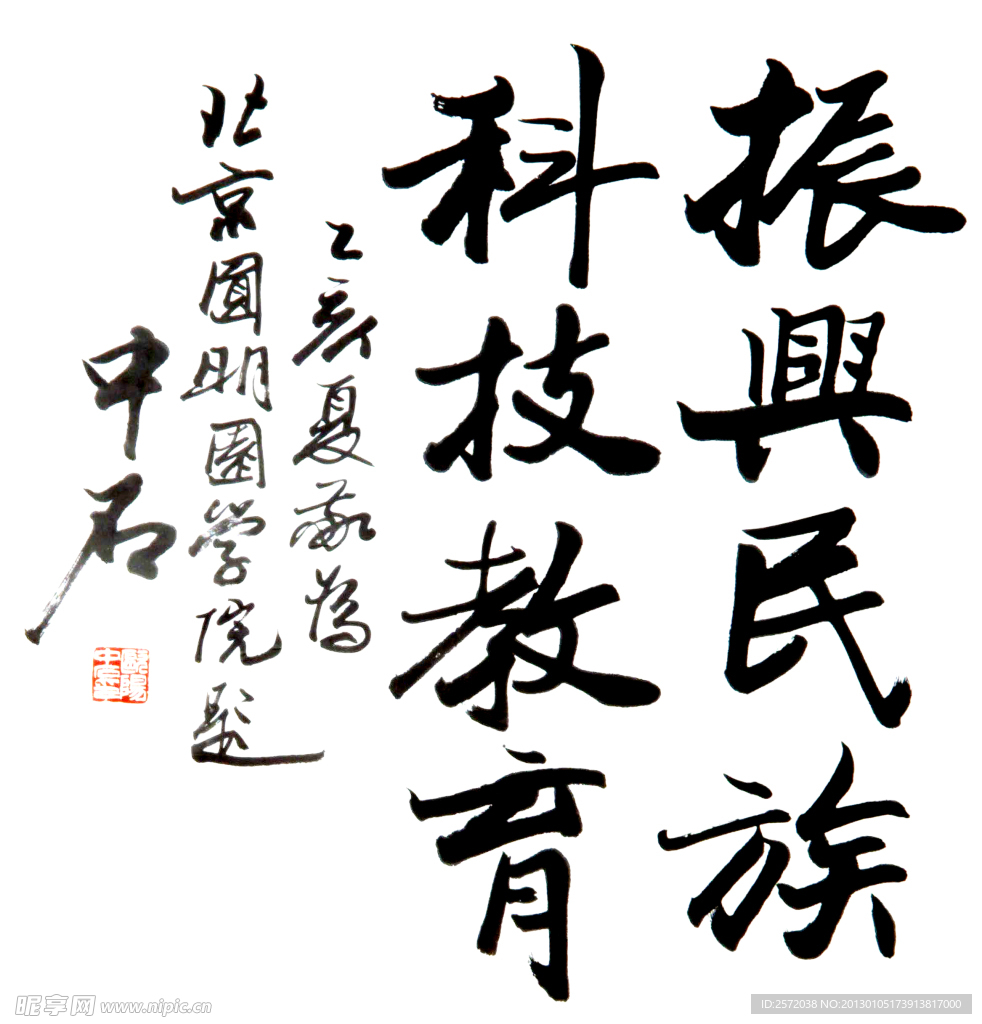 振興民族
科技教育
乙亥夏敬為
北京圆明園学院题
中石
歐陽中石
昵享网 www.nipic.cn
ID:2572038 NO:20130105173913817000